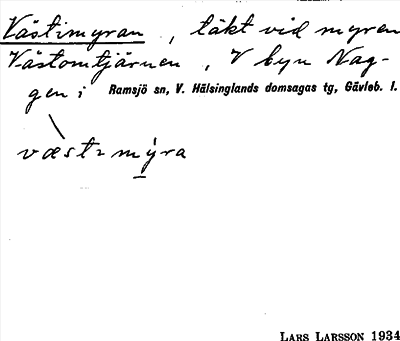 Västimyran , täkt vid myren
Västomtjärnen , V byn Nag-
gen i Ramsjö sn, V. Hälsinglands domsagas tg, Gävleb. l.
væst2mýra
LARS LARSSON 1934